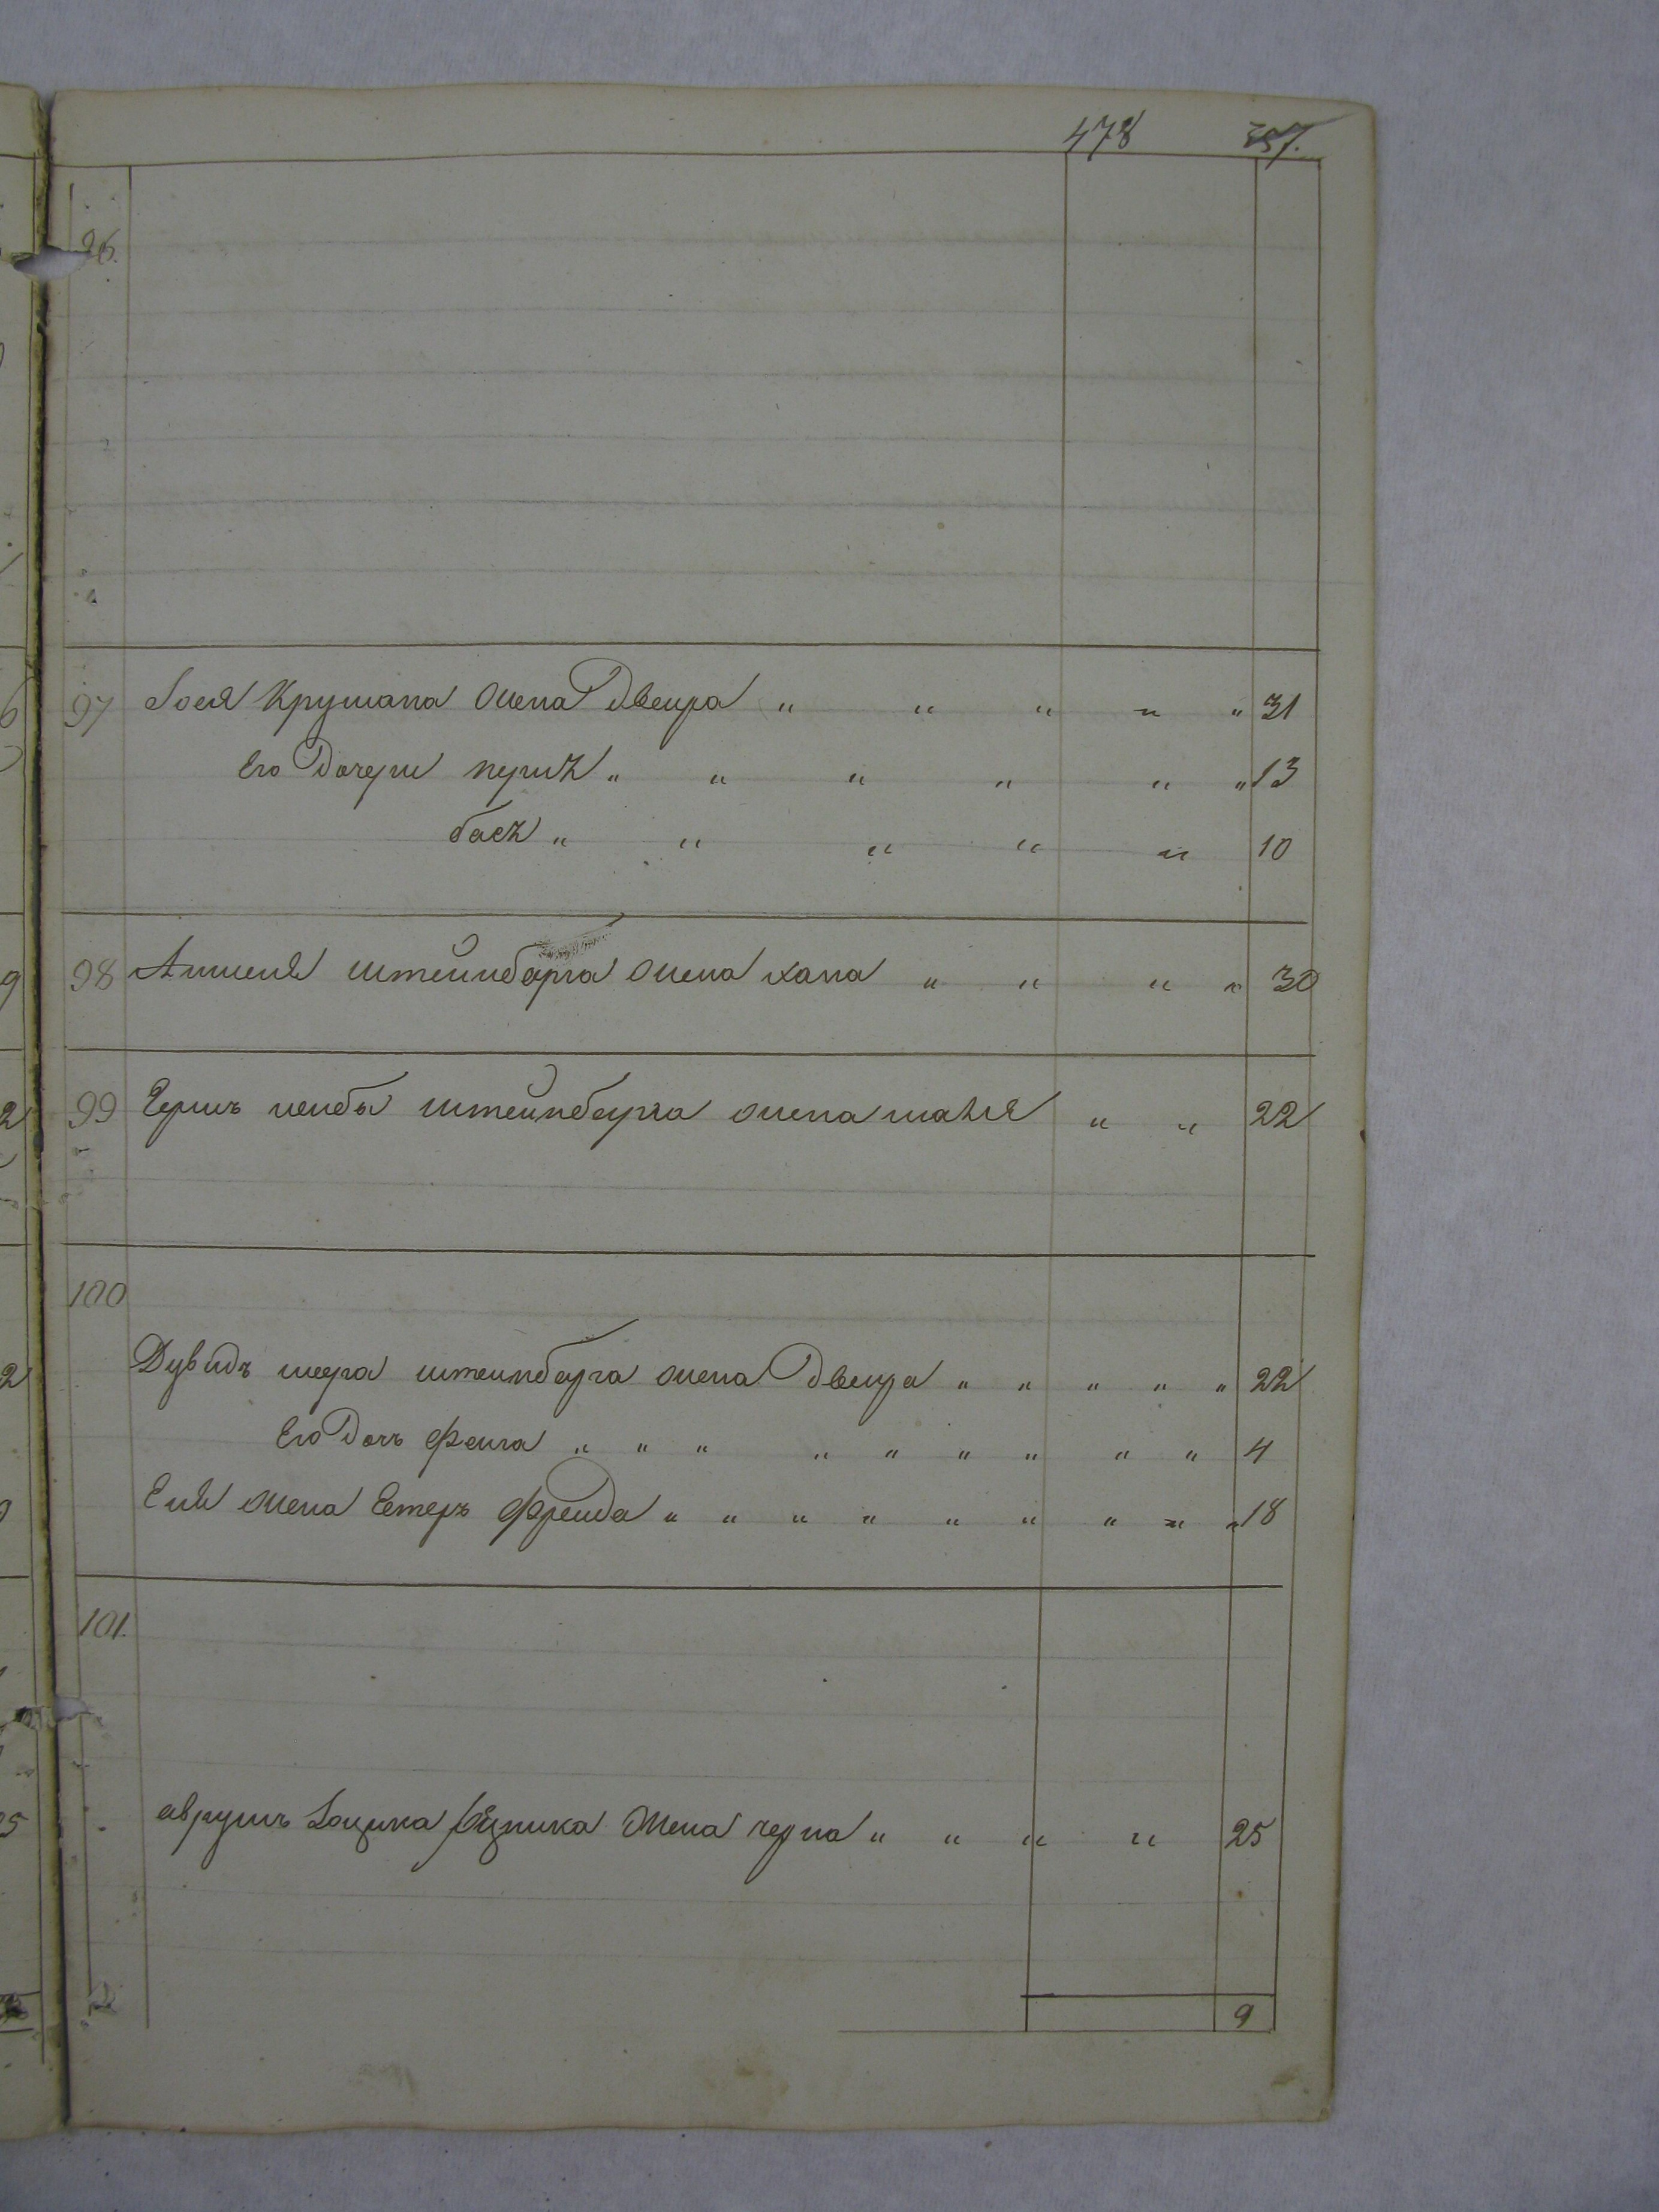 478 257.
96.
97 Iося Крушана Жена Двейра " " " " " 31
Его Дочери перлѣ " " " " " " 13
басѣ " " " " " 10
98 Аншеля штейнбарга жена хана " " " " 30
99 Гершъ лейбы штейнбарга жена " " 22
100
Дувидъ меера штейнбарга жена Двейра " " " " " 22
Его Дочь Фейга " " " " " " " " " 4
жена Естеръ Фрейда " " " " " " " " " 18
101.
аврумъ Iоцика Рѣзника Жена черна " " " " 25
9